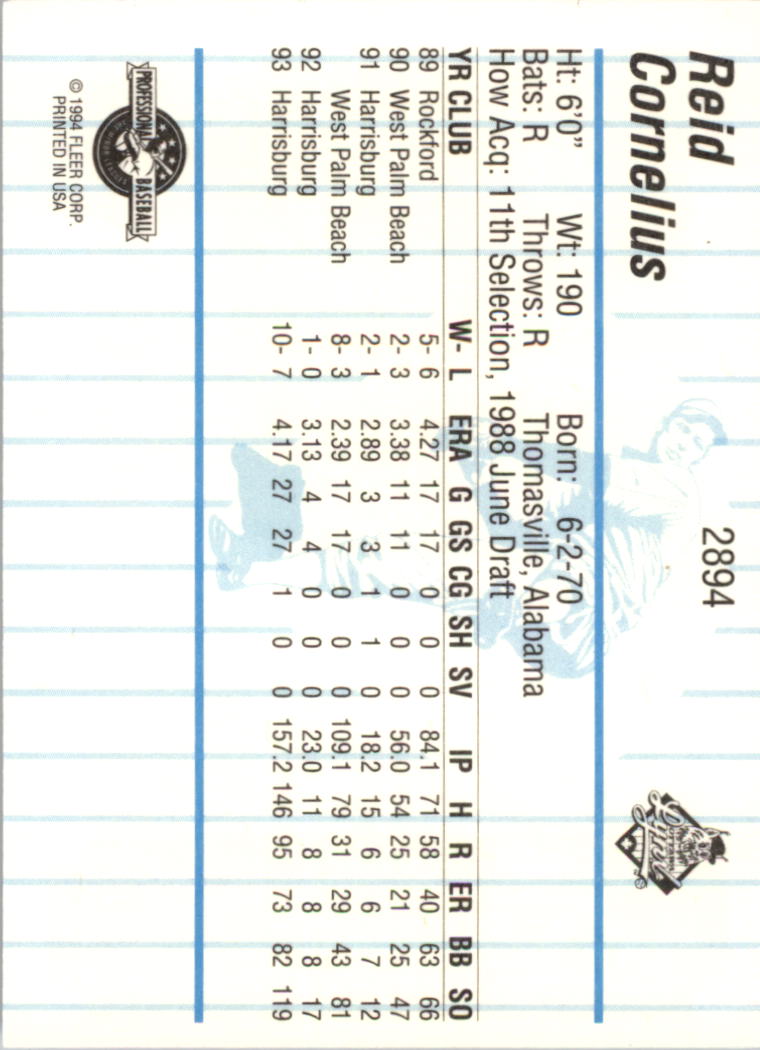 Reid
Cornelius
2894
OTTAWA
Lynx
Ht: 6'0" Wt: 190 Born: 6-2-70
Bats: R Throws: R Thomasville, Alabama
How Acq: 11th Selection, 1988 June Draft
YR CLUB W- L ERA G GS CG SH SV IP H R ER BB SO
89 Rockford 5- 6 4.27 17 17 0 0 0 84.1 71 58 40 63 66
90 West Palm Beach 2- 3 3.38 11 11 0 0 0 56.0 54 25 21 25 47
91 Harrisburg 2- 1 2.89 3 3 1 1 0 18.2 15 6 6 7 12
West Palm Beach 8- 3 2.39 17 17 0 0 0 109.1 79 31 29 43 81
92 Harrisburg 1- 0 3.13 4 4 0 0 0 23.0 11 8 8 8 17
93 Harrisburg 10- 7 4.17 27 27 1 0 0 157.2 146 95 73 82 119
PROFESSIONAL BASEBALL
© 1994 FLEER CORP.
PRINTED IN USA